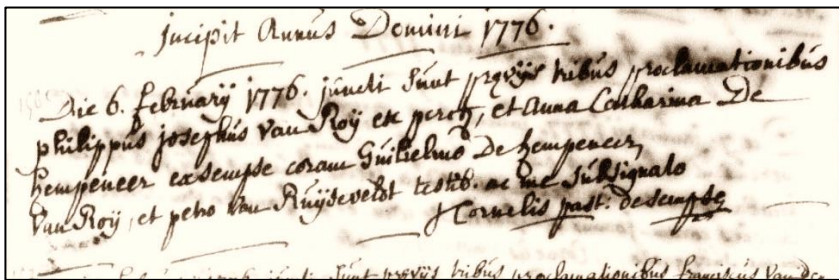 Incipit Annus Domini 1776.
Die 6. februarij 1776. juncti sunt prævijs tribus proclamationibus
philippus josephus Van Roij ex perck, et Anna Catharina De
hempeneer ex sempse coram Guilielmo De hempeneer,
Van Roij, et petro Van Ruijseveldt testib. ac me subsignato
Hornelis past. de sempse
sunt prævijs tribus proclamationibus franciscus Van de